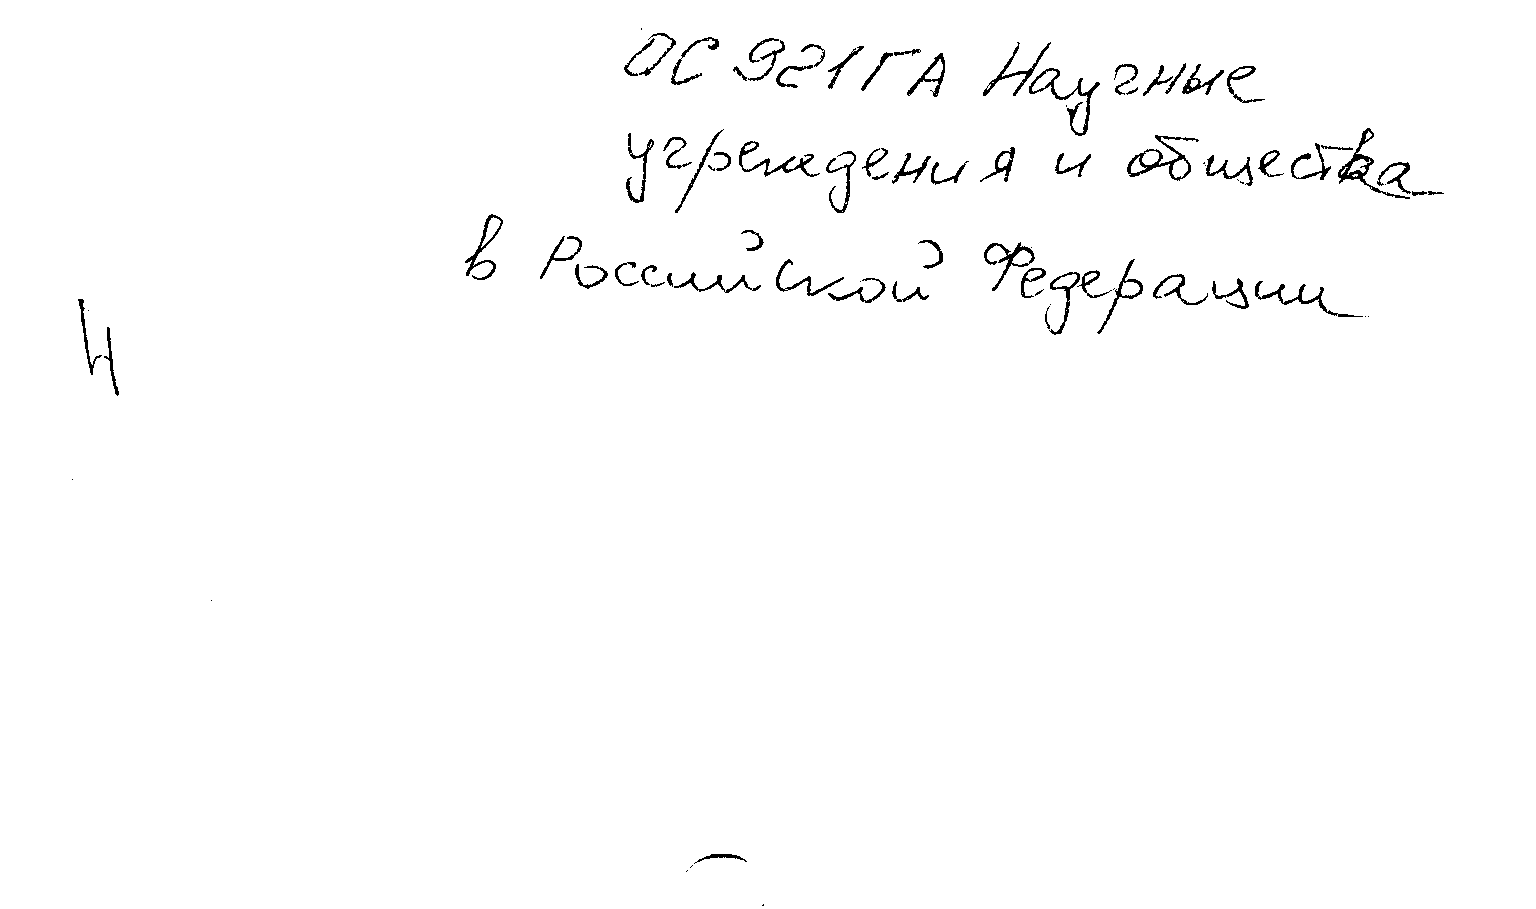 ОС 921 ГА Научные
учреждения и общества
в Российской Федерации
Ч